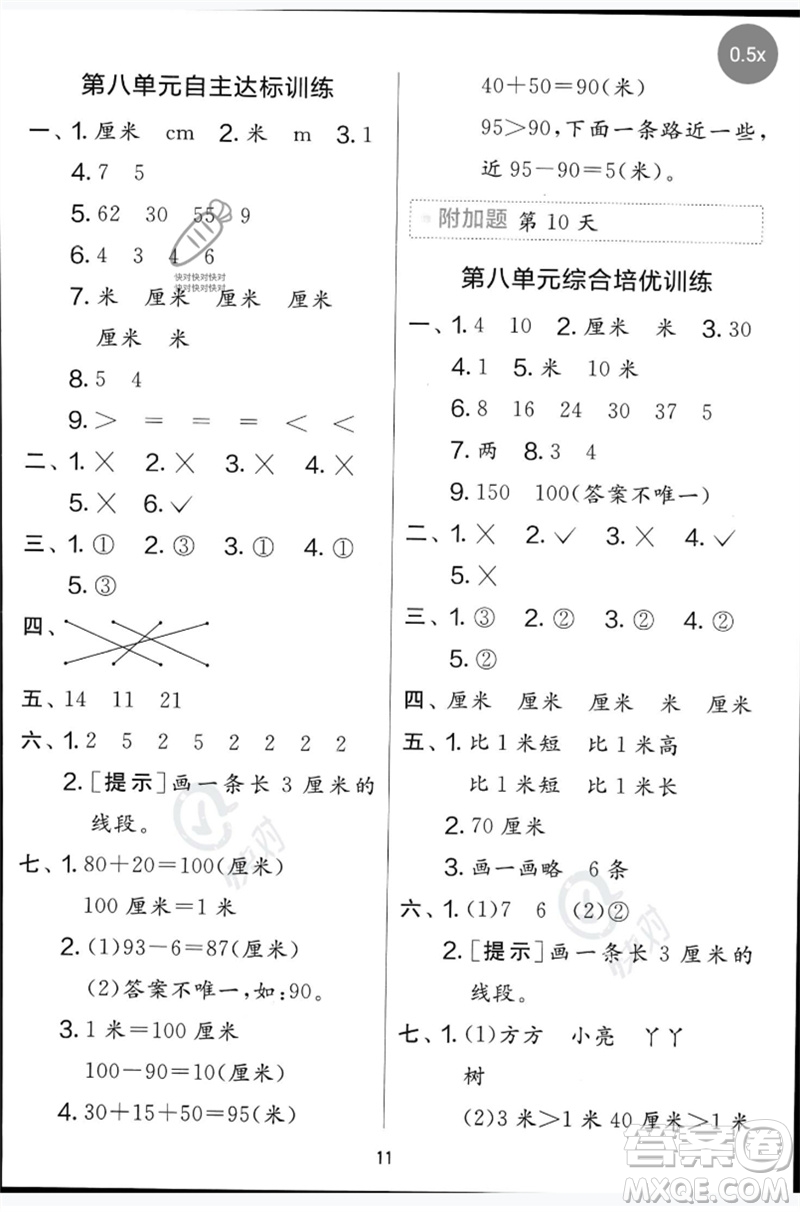 0.5x
第八单元自主达标训练
一、1.厘米 cm 2.米 m 3.1
4.7 5
5.62 30 55 9
6.4 3 4 6
快对快对快对
快对快对快对
7.米 厘米 厘米 厘米
厘米 米
8.5 4
9.＞ ＝ ＝ ＝ ＜ ＜
二、1.✕ 2.✕ 3.✕ 4.✕
5.✕ 6.✓
三、1.① 2.③ 3.① 4.①
5.③
四、
五、14 11 21
六、1.2 5 2 5 2 2 2 2
2.[提示]画一条长 3 厘米的
线段。
七、1.80＋20＝100(厘米)
100 厘米＝1 米
2.(1)93－6＝87(厘米)
(2)答案不唯一,如:90。
3.1 米＝100 厘米
100－90＝10(厘米)
4.30＋15＋50＝95(米)
40＋50＝90(米)
95＞90，下面一条路近一些，
近 95－90＝5(米)。
附加题 第 10 天
第八单元综合培优训练
一、1.4 10 2.厘米 米 3.30
4.1 5.米 10 米
6.8 16 24 30 37 5
7.两 8.3 4
9.150 100(答案不唯一)
二、1.✕ 2.✓ 3.✕ 4.✓
5.✕
三、1.③ 2.② 3.② 4.②
5.②
四、厘米 厘米 厘米 米 厘米
五、1.比 1 米短 比 1 米高
比 1 米短 比 1 米长
2.70 厘米
3.画一画略 6 条
六、1.(1)7 6 (2)②
2.[提示]画一条长 3 厘米的
线段。
七、1.(1)方方 小亮 丫丫
树
(2)3 米＞1 米 40 厘米＞1 米
11
快对
快对
答案圈
MXQE.COM